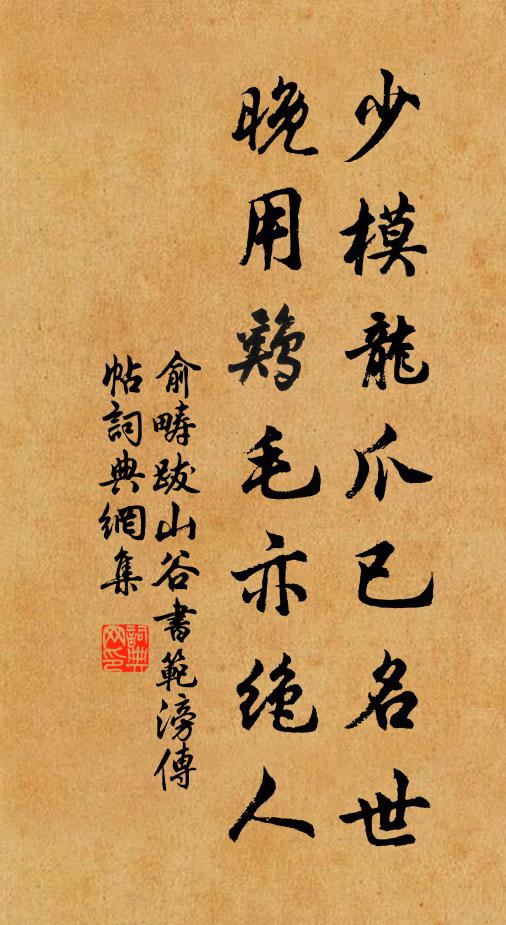 少模龍爪已名世
晚用鷄毛亦绝人
俞疇跋山谷書範滂傳
帖詞典網集
詞典网印